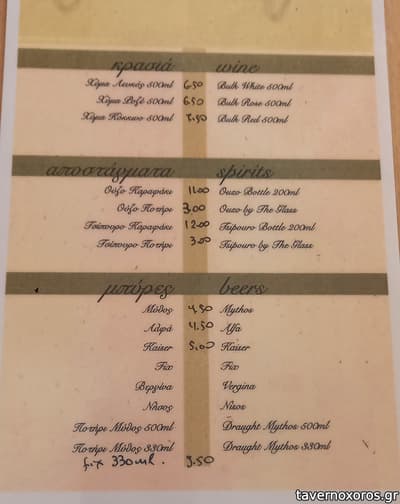 κρασιά wine
Χύμα Λευκός 500ml 6.50 Bulk White 500ml
Χύμα Ροζέ 500ml 6.50 Bulk Rose 500ml
Χύμα Κόκκινο 500ml 7.50 Bulk Red 500ml
αποστάγματα spirits
Ούζο Καραφάκι 11.00 Ouzo Bottle 200ml
Ούζο Ποτήρι 3.00 Ouzo by The Glass
Τσίπουρο Καραφάκι 12.00 Tsipouro Bottle 200ml
Τσίπουρο Ποτήρι 3.00 Tsipouro by The Glass
μπύρες beers
Μύθος 4.50 Mythos
Αλφά 4.50 Alfa
Kaiser 5.00 Kaiser
Fix Fix
Βεργίνα Vergina
Νήσος
Ποτήρι Μύθος 500ml Draught Mythos 500ml
Ποτήρι Μύθος 330ml Draught Mythos 330ml
fix 330ml. 3.50
tavernoxoros.gr